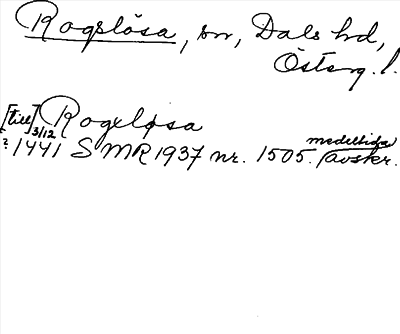 Rogslösa, sn, Dals hd,
Österg. l.
[till] Rogxløsa
3/12
? 1441 SMR 1937 nr. 1505. medeltida avskr.